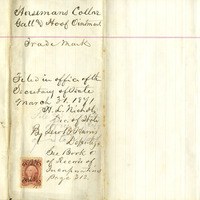 Hersemans Collar
Gall & Hoof Ointment
Trade Mark
Filed in office of the
Secretary of State
March 31, 1871
H. L.
Sec. of State
By
Deputy
See Book
of Record of
Incorporations
Page 212.